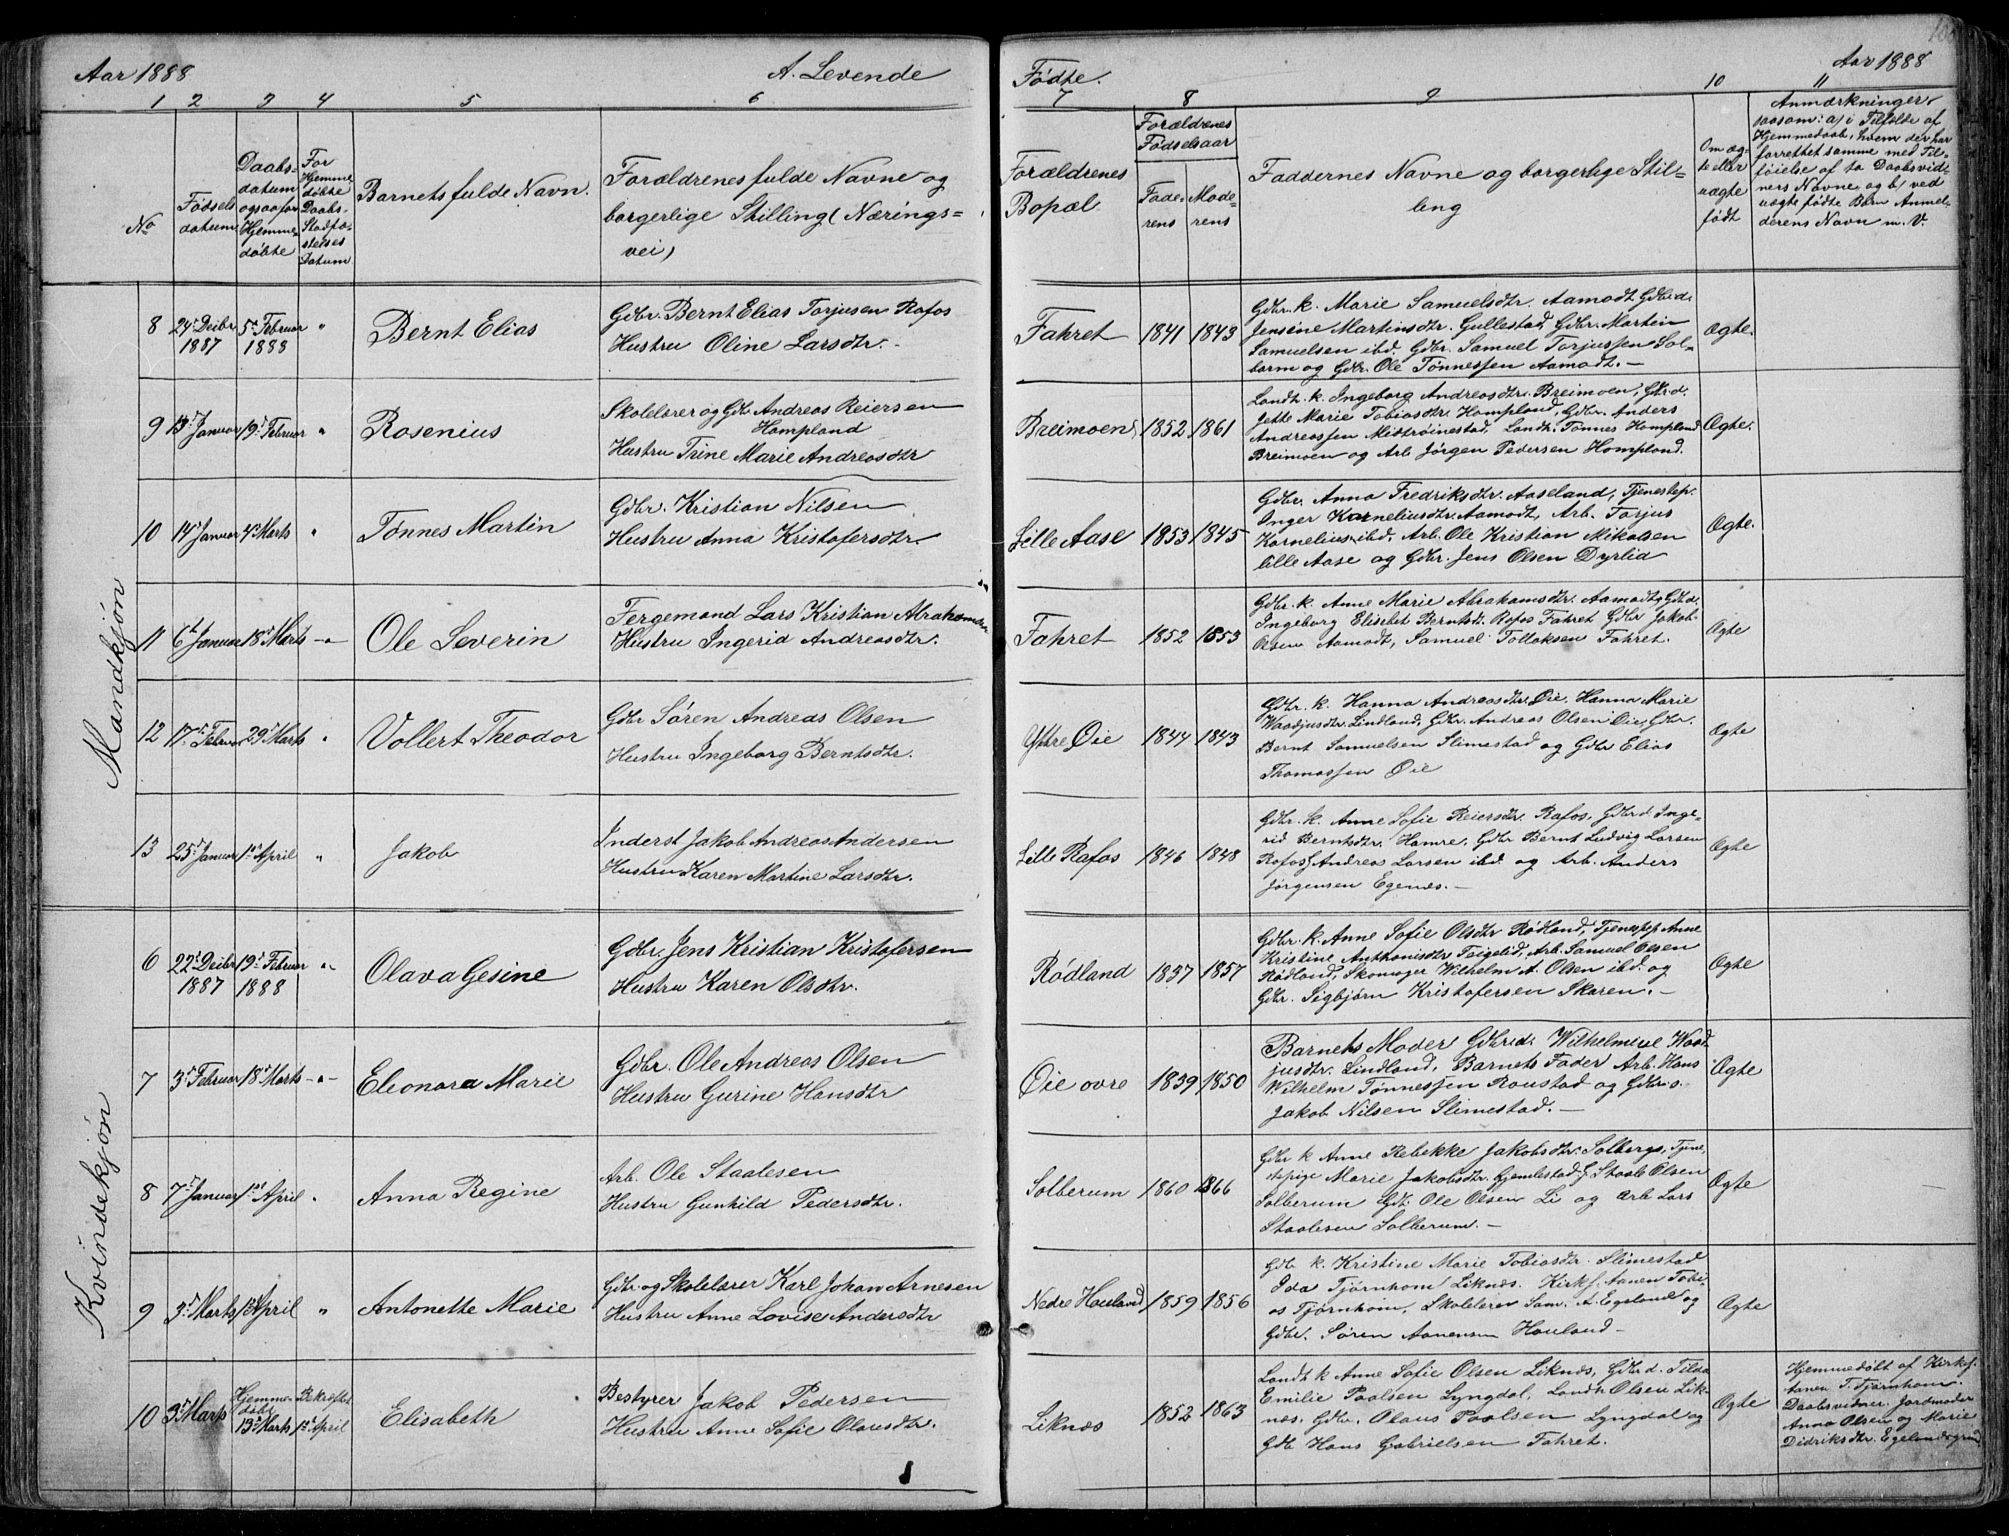 Aar 1888
A. Levende
Fødte.
Aar 1888
1 2 3 4 5 6 7 8 9 10 11
No
Fødsels
datum
Daabs-
datum
ogsaa for
Hjemme-
døbte
For
Hjemme
døbte
Daabs-
Stadfæ-
stelses
Datum
Barnets fulde Navn.
Forældrenes fulde Navne og
borgerlige Stilling (Nærings=
vei)
Forældrenes
Bopæl.
Forældrenes
Fødselsaar
Fade-
rens
Mode-
rens
Faddernes Navne og borgerlige Stil-
ling
Om æg-
te eller
uægte
født
Anmærkninger,
saasom: a) i Tilfælde af
Hjemmedaab, hvem der har
forrettet samme med Til-
føielse af to Daabsvid-
ners Navne og b) ved
uægte fødte Børn Anmel-
derens Navn m. V.
Mandkjøn
8 24 Decbr 1887 5 Februar 1888 "
Bernt Elias
Gdbr. Bernt Elias Torjusen Rafos
Hustru Oline Larsdtr.
Fahret 1841 1843
Gdbr. k. Marie Samuelsdtr. Aamodt, Gdbrd.
Jensine Martinsdtr. Gullestad, Gdbr. Martin
Samuelsen ibd. Gdbr. Samuel Torjussen Sol-
borm og Gdbr. Ole Tønnessen Aamodt. —
Ægte.
9 13 Januar 19 Februar "
Rosenius
Skolelærer og Gdbr Andreas Reiersen
Hompland
Hustru Trine Marie Andreasdtr
Breimoen 1852 1861
Landh. k. Ingeborg Andreasdtr. Breimoen, Gdbrd.
Jette Marie Tobiasdtr. Hompland, Gdbr. Anders
Andreassen Midtrøinestad, Landh. Tønnes Hompland
Breimoen og Arb. Jørgen Pedersen Hompland.
Ægte.
10 14 Januar 4 Marts "
Tønnes Martin
Gdbr. Kristian Nilsen
Hustru Anna Kristofersdtr.
Lille Aase 1853 1845
Gdbr. Anna Fredriksdtr. Aaseland, Tjenestep.
Inger Korneliusdtr. Aamodt, Arb. Torjus
Kornelius ibd. Arb. Ole Kristian Mikalsen
lille Aase og Gdbr. Jens Olsen Dyrlid
Ægte.
11 6 Januar 18 Marts "
Ole Severin
Fergemand Lars Kristian Abrahamsen
Hustru Ingerid Andreasdtr.
Fahret 1852 1853
Gdbr. k. Anne Marie Abrahamsdtr. Aamodt, Gdbrd.
Ingeborg Elisabet Berntsdt. Rafos Fahret Gdbr Jakob
Olsen Aamodt, Samuel Tollaksen Fahret.
Ægte
12 17 Februar 29 Marts "
Vollert Theodor
Gdbr Søren Andreas Olsen
Hustru Ingeborg Berntsdtr.
Ytre Øie 1844 1843
Gdbr. k. Hanna Andreasdtr. Øie, Hanna Marie
Waadjusdtr. Lindland, Gdbr. Andreas Olsen Øie, Gdbr.
Bernt Samuelsen Slimestad og Gdbr Elias
Thomassen Øie
Ægte
13 25 Januar 1 April "
Jakob
Inderst Jakob Andreas Andersen
Hustru Karen Martine Larsdtr.
Lille Rafos 1846 1848
Gdbr. k. Anne Sofie Reiersdtr. Rafos, Gdbrd. Inge-
rid Berntsdtr. Hamre, Gdbr Bernt Ludvig Larsen
Rafos, Andreas Larsen ibd. og Arb. Anders
Jørgensen Egenæs. —
Ægte
Kvindekjøn
6 22 Decbr 1887 19 Februar 1888 "
Olava Gesine
Gdbr. Jens Kristian Kristofersen
Hustru Karen Olsdtr.
Rødland 1837 1857
Gdbr. k. Anne Sofie Olsdtr Rødland, Tjenestep Anne
Kristine Anthonisdtr Faigelid, Arb. Samuel Olsen
Rødland, Skomager Wilhelm A. Olsen ibd. og
Gdbr. Sigbjørn Kristofersen Skaren. —
Ægte
7 3 Februar 18 Marts "
Eleonora Marie
Gdbr. Ole Andreas Olsen
Hustru Gurine Hansdtr
Øie øvre 1839 1850
Barnets Moder Gdbrd. Wilhelmine Waad-
jusdtr. Lindland, Barnets Fader Arb. Hans
Wilhelm Tønnessen Raustad og Gdbr.
Jakob Nilsen Slimestad. —
Ægte
8 7 Januar 1 April "
Anna Regine
Arb. Ole Staalesen
Hustru Gunhild Pedersdtr.
Solberum 1860 1866
Gdbr k Anne Rebekke Jakobsdtr. Solberg, Tjene
stepige Marie Jakobsdtr. Gjemlestad, G. Staale Olsen
Solberum Gdb. Ole Olsen Li og Arb Lars
Staalesen Solberum. —
Ægte
9 3 Marts 1 April "
Antonette Marie
Gdbr og Skolelærer Karl Johan Arnesen
Hustru Anne Lovise Andersdtr
Nedre Houland 1859 1856
Gdb k. Kristine Marie Tobiasdtr. Slimestad
Ida Tjørnhom Liknæs. Kirks. Aanen Tobi-
as Tjørnhom, Skolelærer Sam. A. Egeland og
Gdbr. Søren Aanensen Houland —
Ægte
10 3 Marts Hjemme-
døbt
13 Marts Bekræftet
1 April
Elisabeth
Bestyrer Jakob Pedersen
Hustru Anne Sofie Olausdtr.
Liknæs 1852 1863
Landh k Anne Sofie Olsen Liknæs, Gdbrd. Tilda
Emilie Paalsen Lyngdal, Landh. Olsen Lik-
næs. Gdbr. Olaus Paalsen Lyngdal og
Gdb Hans Gabrielsen Fahret.
Ægte
Hjemmedøbt af Kirks.
Aanen T. Tjørnhom.
Daabsvidner. Jordmoder
Anna Olsen og Marie
Didriksdtr. Egelandsgrund